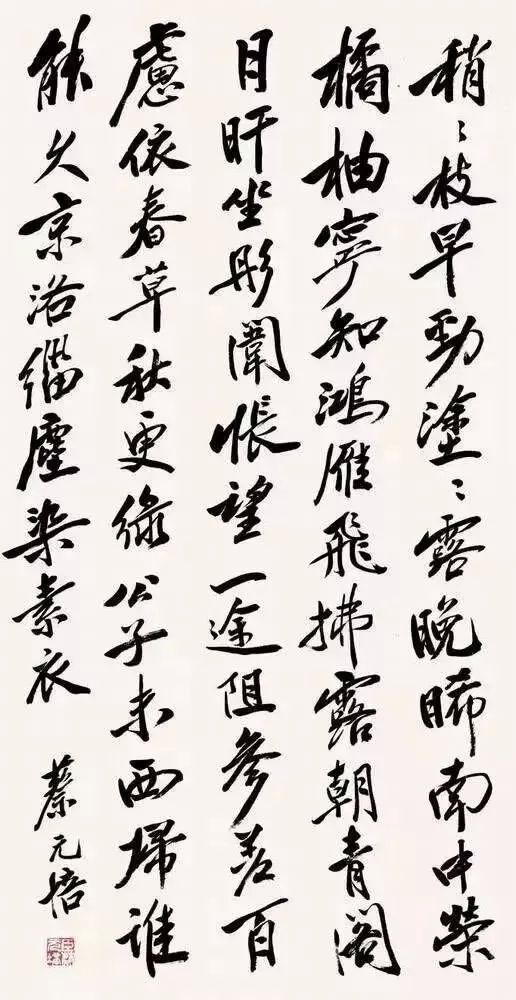 稍〻枝早勁塗〻露晚晞南中榮
橘柚寧知鴻雁飛拂露朝青閣
日旰坐彤闈悵望一途阻參差百
慮依春草秋更綠公子未西歸誰
能久京洛緇塵染素衣
蔡元培